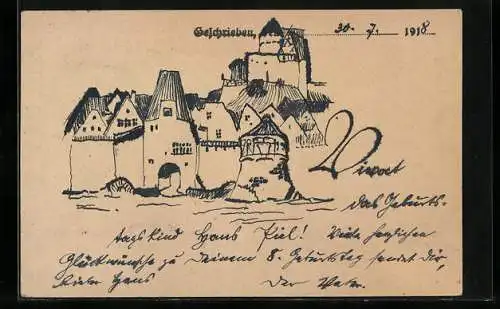 Geschrieben, 30. 7. 1918
Vivat
das Geburts-
tagskind Hans Kiel! Viele herzlichen
Glückwünsche zu Deinem 8. Geburtstag sendet dir,
lieber Hans
Der Vater.